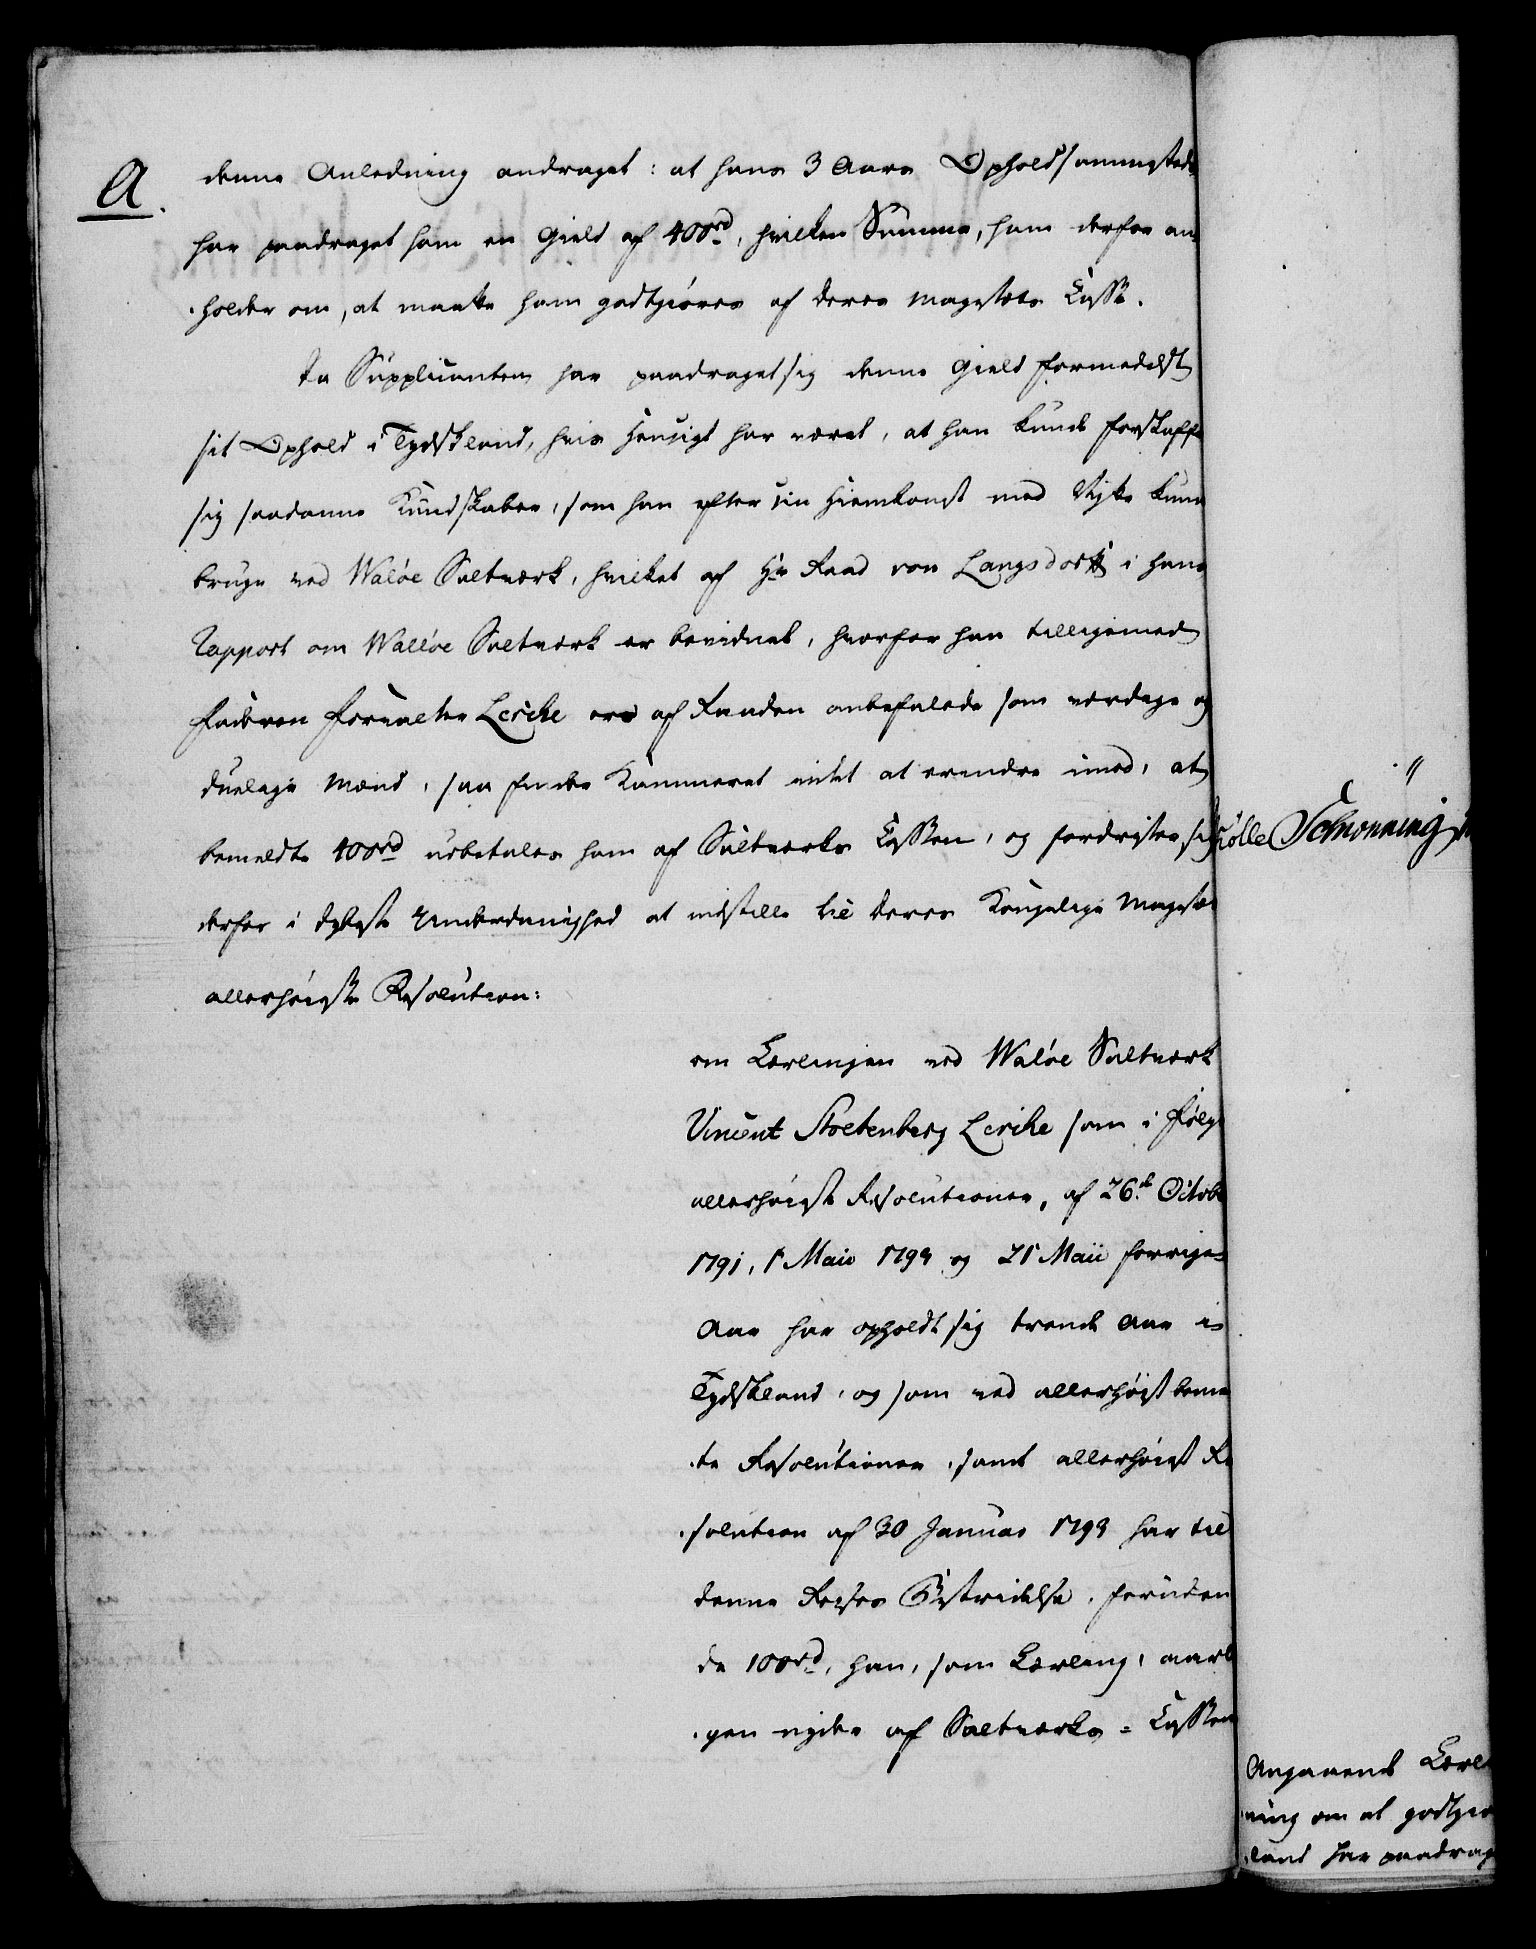 A.
denne Anledning andraget: at hans 3 Aars Ophold sammesteds
har paadraget ham en Gield af 400rd, hvilken Summa, han derfor an-
holder om, at maatte ham godtgiöres af Deres Majestæts Casse.
Da Supplicanten har paadraget sig denne Gield formedelst
sit Ophold i Tydskland, hvis Hensigt har været, at han kunde forskaffe
sig saadanne Kundskaber, som han efter sin Hiemkomst med Nytte kunde
bruge ved Walöe Saltværk, hvilket af Hr Raad von Langsdorff i hans
Rapport om Wallöe Saltværk er bevidnet, hvorfor han tilligemed
Faderen Forvalter Lerche ere af Raaden anbefalede som værdige og
duelige Mænd, saa finder Kammeret intet at erindre imod, at
bemeldte 400rd udbetales ham af Saltværks Cassen, og fordrister sig
derfor i dybeste Underdanighed at indstille til Deres Kongelige Majestæts
allerhöieste Resolution:
om Lærlingen ved Walöe Saltværk
Vincent Stoltenberg Lerche som i Fölge
allerhöieste Resolutioner, af 26d Octobr
1791, 1 Maii 1793 og 21 Maii forrige
Aar har opholdt sig trende Aar i
Tydskland, og som ved allerhöist bemeld-
te Resolutioner, samt allerhöist Re-
solution af 30 Januar 1793 har til
denne Reises Bestridelse, foruden
de 100rd, han, som Lærling, aarli-
gen nyder af Saltværks-Cassen
Kölle Schönning
Angaaende Lærl
ning om at godtgiö
land har paadrag